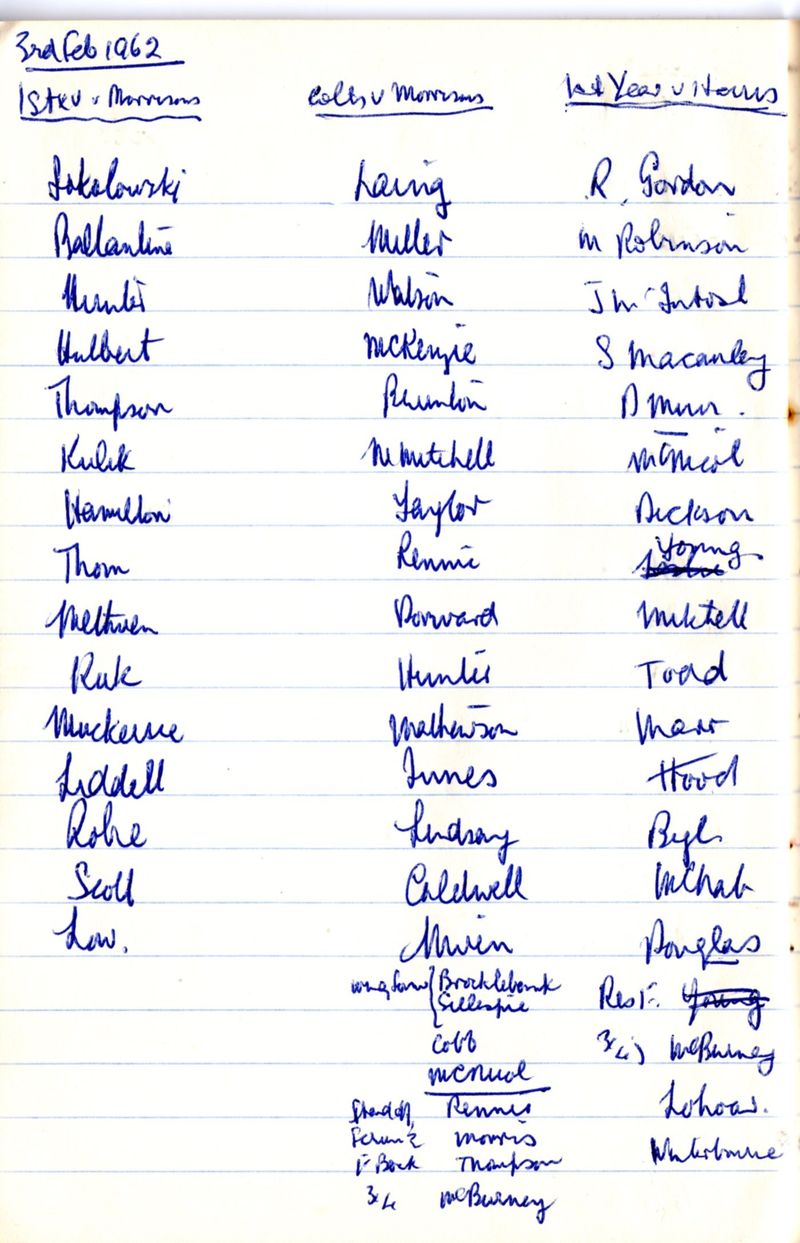 3rd Feb 1962
1st XV v Morrisons
Colts v Morrisons
1st Year v Harris
Sokolowski
Ballantine
Hunter
Hulbert
Thompson
Kulik
Hamilton
Thom
Methven
Ruk
Mackenzie
Liddell
Robbie
Scott
Low.
Laing
Miller
Watson
McKenzie
M Mitchell
Taylor
Rennie
Dorward
Hunter
Mathewson
Innes
Lindsay
Caldwell
Niven
wing forw { Brocklebank
Gillespie
Cobb
McNicol
Stand off Rennie
Scrum ½ Morris
F Back Thompson
¾ McBurney
R. Gordon
M Robinson
J McIntosh
S Macauley
D Muir.
McNicol
Dickson
Young
Mitchell
Todd
Marr
Hood
McNab
Douglas
Res F. Young
¾s) McBurney
Winterbourne